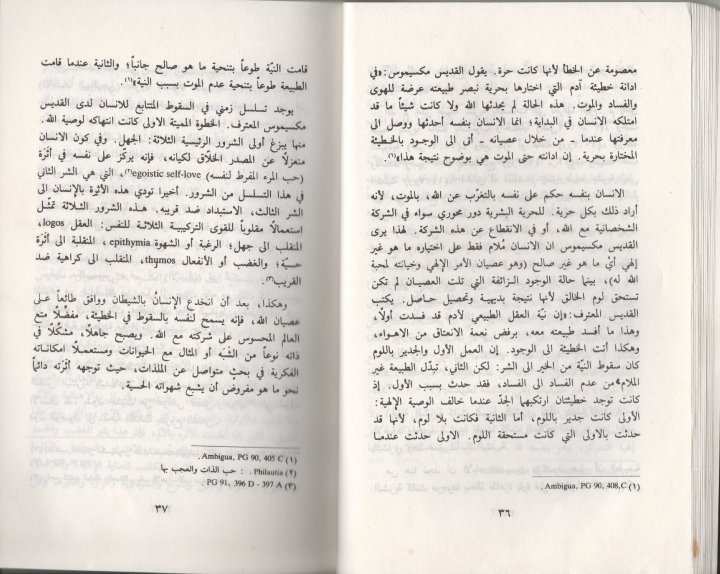 معصومة عن الخطأ لأنها كانت حرة. يقول القديس مكسيموس: «في
ادانة خطيئة آدم التي اختارها بحرية نبصر طبيعته عرضة للهوى
والفساد والموت. هذه الحالة لم يحدثها الله ولا كانت شيئاً ما قد
امتلكه الانسان في البداية؛ انما الانسان بنفسه أحدثها ووصل الى
معرفتها عندما ـ من خلال عصيانه ـ أتى الى الوجود بالخطيئة
المختارة بحرية. إن ادانته حتى الموت هي بوضوح نتيجة هذا»(١).
الانسان بنفسه حكم على نفسه بالتغرّب عن الله، بالموت، لأنه
أراد ذلك بكل حرية. للحرية البشرية دور محوري سواء في الشركة
الشخصانية مع الله، أو في الانقطاع عن هذه الشركة. لهذا يرى
القديس مكسيموس ان الانسان مُلام فقط على اختياره ما هو غير
إلهي أيْ ما هو غير صالح (وهو عصيان الأمر الإلهي وخيانته لمحبة
الله له)، بينما حالة الوجود الزائفة التي تلت العصيان لم تكن
تستحق لوم الخالق لأنها نتيجة بديهية وتحصيل حاصل. يكتب
القديس المعترف: «إن نيّة العقل الطبيعي لآدم قد فسدت أولاً،
وهذا ما أفسد طبيعته معه، برفض نعمة الانعتاق من الاهواء،
وهكذا أتت الخطيئة الى الوجود. إن العمل الأول والجدير باللوم
كان سقوط النيّة من الخير الى الشر: لكن الثاني، تبدّل الطبيعة غير
الملام «من عدم الفساد الى الفساد، فقد حدث بسبب الأول. إذ
كانت توجد خطيئتان ارتكبهما الجدّ عندما خالف الوصية الإلهية:
الأولى كانت جدير باللوم، أما الثانية فكانت بلا لوم، لأنها قد
حدثت بالاولى التي كانت مستحقة اللوم. الاولى حدثت عندما
(١) Ambigua, PG 90, 408,C.
٣٦
قامت النيّة طوعاً بتنحية ما هو صالح جانباً؛ والثانية عندما قامت
الطبيعة طوعاً بتنحية عدم الموت بسبب النية»(١).
يوجد تسلسل زمني في السقوط المتتابع للانسان لدى القديس
مكسيموس المعترف. الخطوة المميتة الاولى كانت انتهاكه لوصية الله.
منها يبزغ أولى الشرور الرئيسية الثلاثة: الجهل. وفي كون الانسان
منعزلاً عن المصدر الخلّاق لكيانه، فإنه يركّز على نفسه في أثَرَة
(حب المرء المفرط لنفسه) egoistic self-love(٢)، التي هي الشر الثاني
في هذا التسلسل من الشرور. أخيرا تودي هذه الأثرة بالإنسان الى
الشر الثالث، الاستبداد ضد قريبه. هذه الشرور الثلاثة تمثّل
استعمالاً مقلوباً للقوى التركيبية الثلاثة للنفس: العقل logos،
المنقلب الى جهل؛ الرغبة أو الشهوة epithymia، المنقلبة الى أثَرَة
حسيّة؛ والغضب أو الأنفعال thumos، المنقلب الى كراهية ضد
القريب(٣).
وهكذا، بعد أن انخدع الإنسان بالشيطان ووافق طائعاً على
عصيان الله، فإنه يسمح لنفسه بالسقوط في الخطيئة، مفضّلاً متع
العالم المحسوس على شركته مع الله. ويصبح جاهلاً، مشكّلاً في
ذاته نوعاً من الشَبَه أو المثال مع الحيوانات ومستعملاً امكاناته
الفكرية في بحث متواصل عن الملذات، حيث توجهه أثَرته دائماً
نحو ما هو مفروض أن يشبع شهواته الحسية.
(١) Ambigua, PG 90, 405 C.
(٢) Philautia. : حب الذات والعجب بها
(٣) PG 91, 396 D - 397 A
٣٧